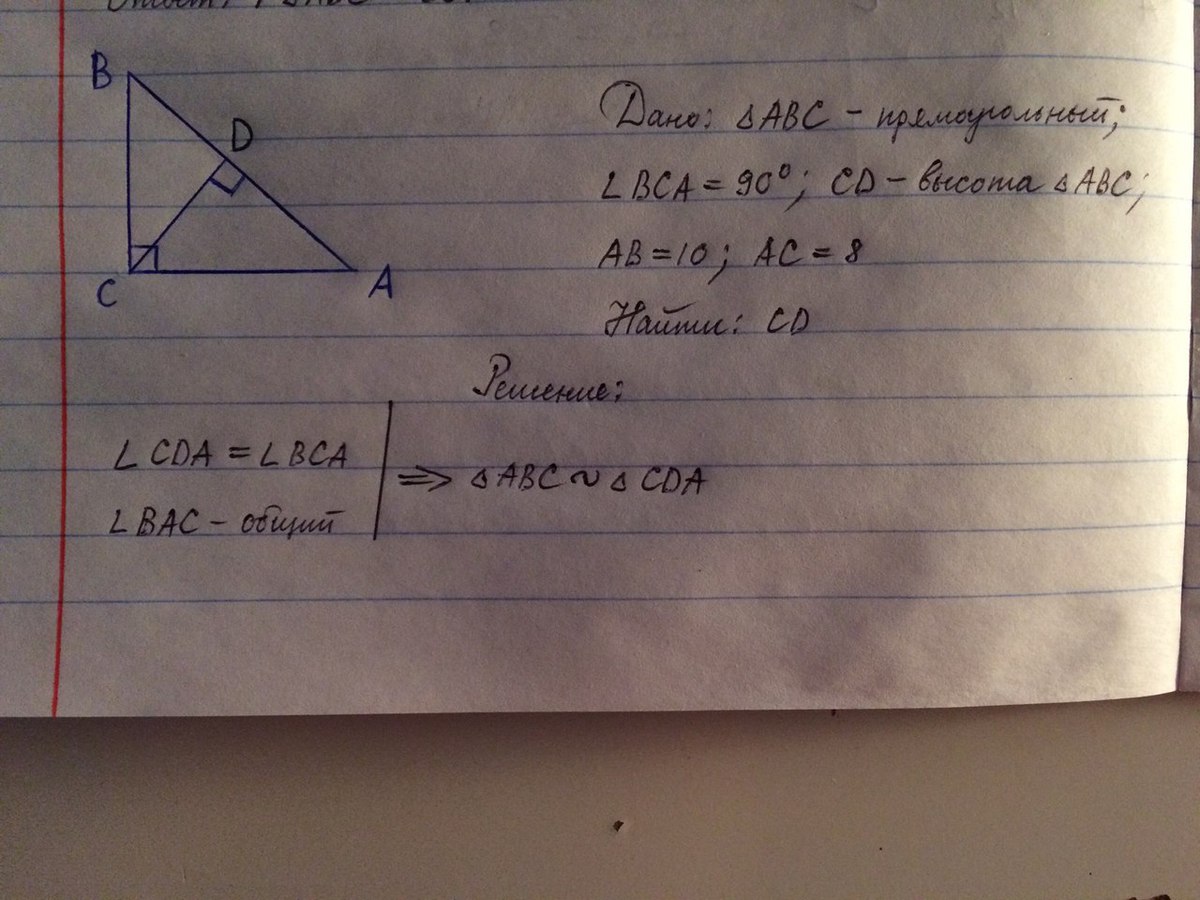 B
D
C
A
Дано: △ABC - прямоугольный;
∠BCA = 90°; CD - высота △ABC;
AB = 10; AC = 8
Найти: CD
Решение:
∠CDA = ∠BCA
∠BAC - общий
⇒ △ABC ~ △CDA